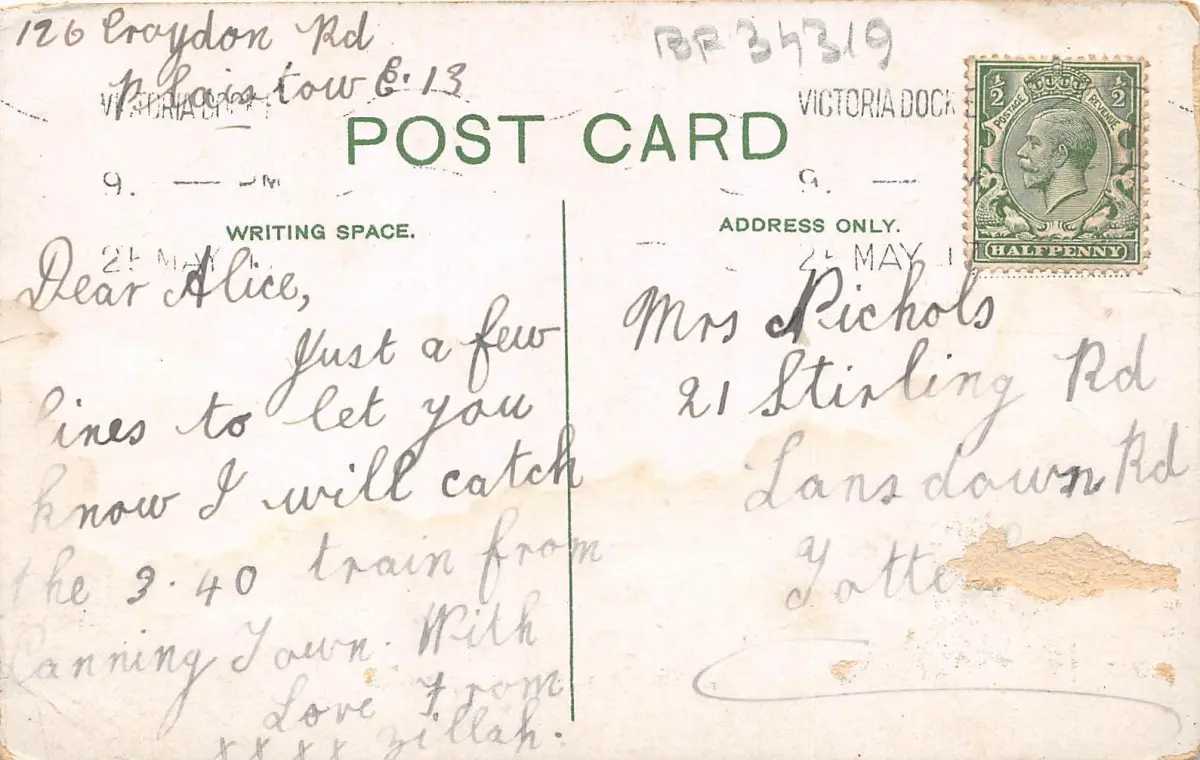 126 Croydon Rd
Plaistow E. 13
BF 34319
POST CARD
VICTORIA DOCK
9. — PM
9. —
MAY
MAY
WRITING SPACE.
ADDRESS ONLY.
½ ½
POSTAGE REVENUE
HALFPENNY
Dear Alice,
Just a few
lines to let you
know I will catch
the 3.40 train from
Canning Town. With
Love From
x x x x Zillah.
Mrs Nichols
21 Stirling Rd
Lansdown Rd